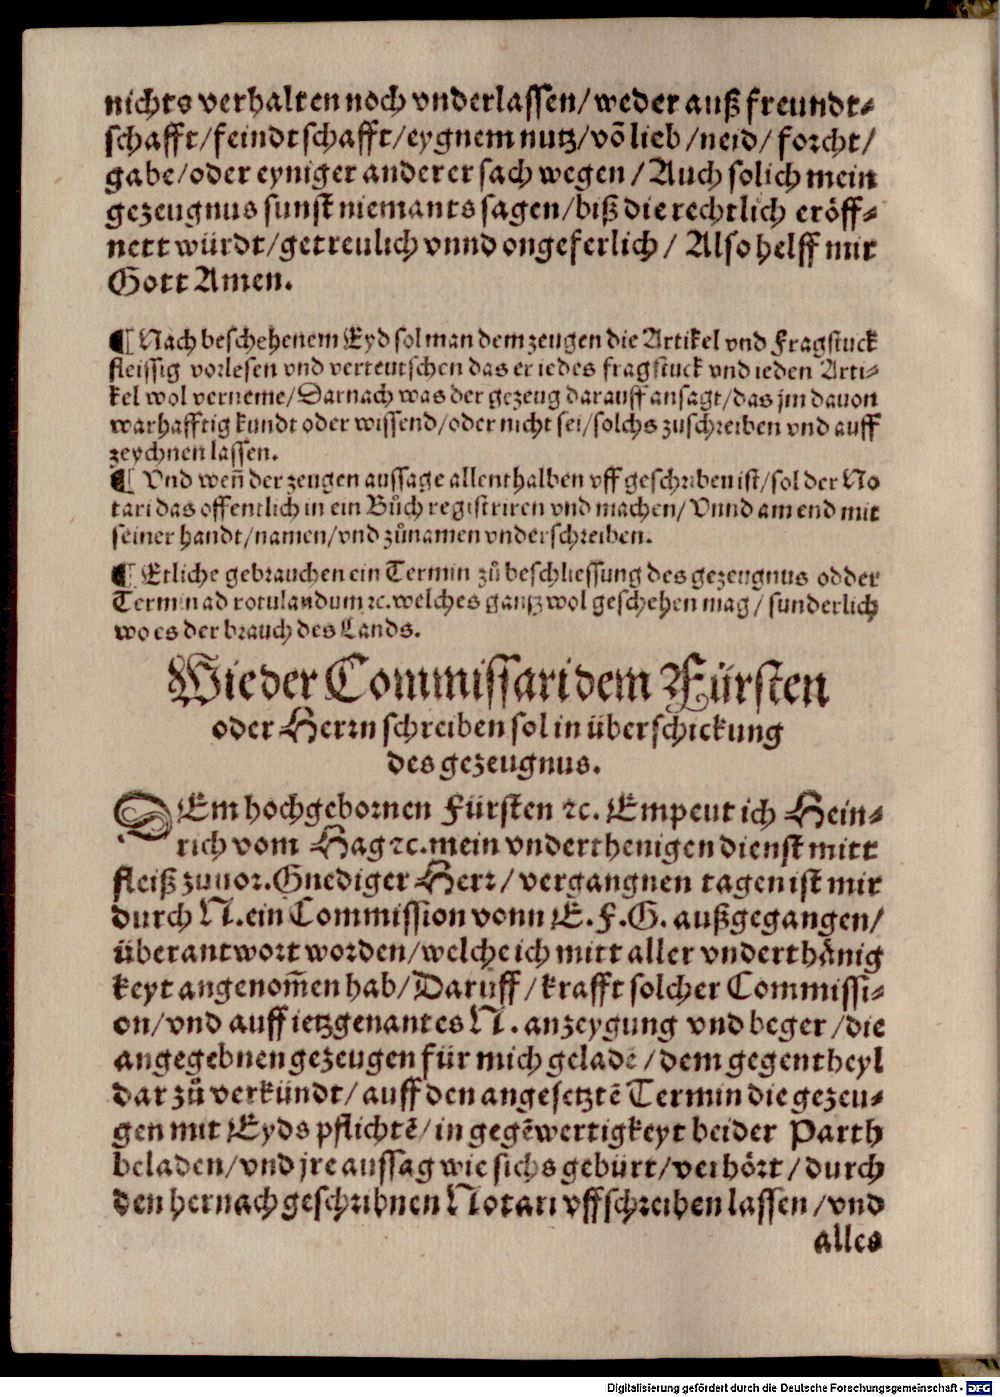 nichts verhalten noch vnderlassen/weder auß freundt-
schafft/feindtschafft/eygnem nutz/võ lieb/neid/forcht/
gabe/oder eyniger anderer sach wegen/Auch solich mein
gezeugnus sunst niemants sagen/biß die rechtlich eröff-
nett würdt/getreulich vnnd ongeferlich/ Also helff mir
Gott Amen.
¶ Nach beschehenem Eyd sol man dem zeugen die Artikel vnd Fragstuck
fleissig vorlesen vnd verteutschen das er iedes fragstuck vnd ieden Arti-
kel wol verneme/Darnach was der gezeug darauff ansagt/das jm dauon
warhafftig kundt oder wissend/oder nicht sei/solchs zuschreiben vnd auff
zeychnen lassen.
¶ Vnd weñ der zeugen aussage allenthalben vff geschriben ist/sol der No
tari das offentlich in ein Bůch registriren vnd machen/ Vnnd am end mit
seiner handt/namen/vnd zůnamen vnderschreiben.
¶ Etliche gebrauchen ein Termin zů beschliessung des gezeugnus odder
Termin ad rotulandum ꝛc. welches gantz wol geschehen mag/ sunderlich
wo es der brauch des Lands.
Wie der Commissari dem Fürsten
oder Herrn schreiben sol in überschickung
des gezeugnus.
DEm hochgebornen Fürsten ꝛc. Empeut ich Hein-
rich vom Hag ꝛc. mein vnderthenigen dienst mitt
fleiß zuuor. Gnediger Herr/vergangnen tagen ist mir
durch N. ein Commission vonn E. F. G. außgegangen/
überantwort worden/welche ich mitt aller vnderthånig
keyt angenom̃en hab/Daruff/krafft solcher Commissi-
on/vnd auff ietzgenantes N. anzeygung vnd beger/die
angegebnen gezeugen für mich geladẽ/dem gegentheyl
dar zů verkündt/auff den angesetztẽ Termin die gezeu-
gen mit Eyds pflichtẽ/in gegẽwertigkeyt beider Parth
beladen/vnd jre aussag wie sichs gebürt/verhört/durch
den hernach geschribnen Notari vffschreiben lassen/vnd
alles
Digitalisierung gefördert durch die Deutsche Forschungsgemeinschaft - DFG